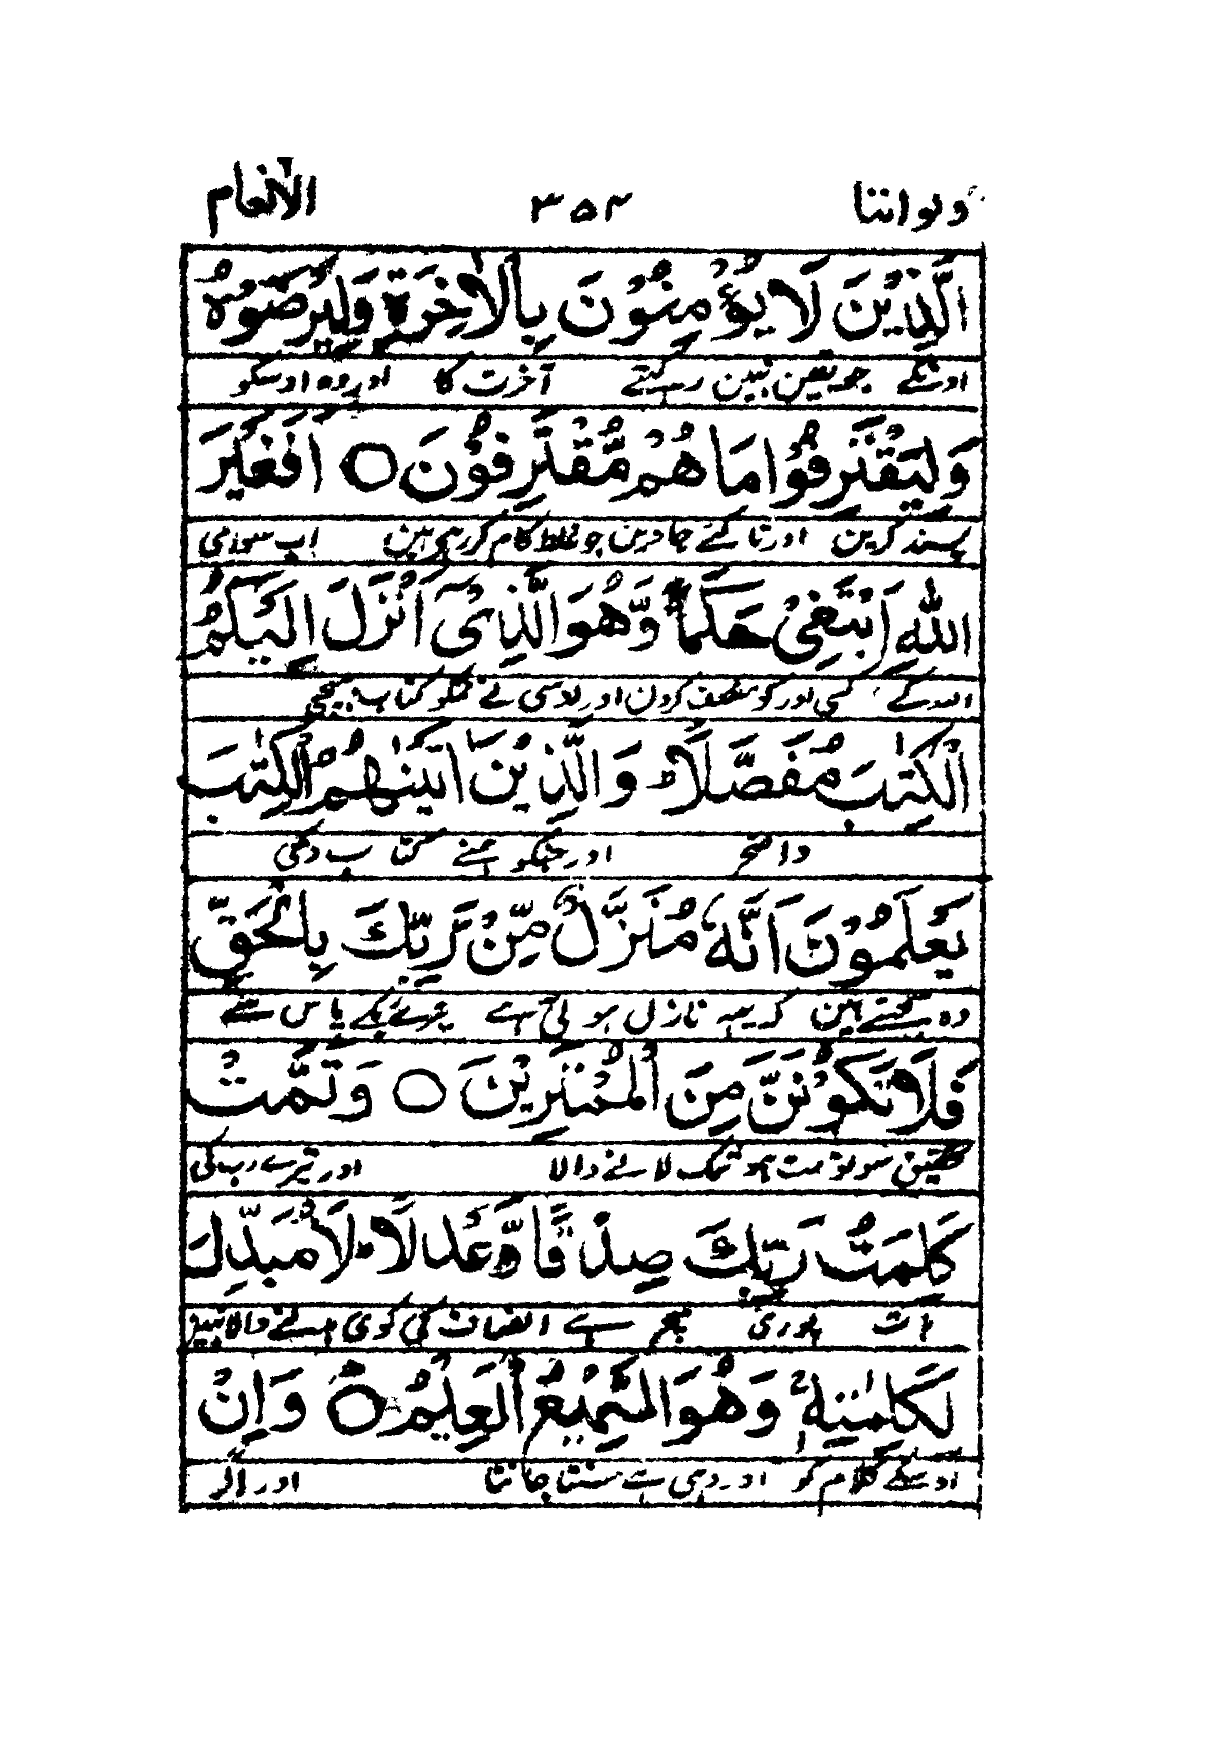 ولو اننا ۳۵۴ الانعام
الَّذِيْنَ لَا يُؤْمِنُوْنَ بِالْاٰخِرَةِ وَلِيَرْضَوْهُ
اونکے جو یقین نہین رکہتے آخرت کا اور وہ اوسکو
وَلِيَقْتَرِفُوْا مَا هُمْ مُّقْتَرِفُوْنَ ○ اَفَغَيْرَ
پسند کرین اور تا کئے جاوین جو غلط کام کر رہی ہین اب سوای
اللّٰهِ اَبْتَغِيْ حَكَمًا وَّهُوَ الَّذِيْٓ اَنْزَلَ اِلَيْكُمُ
اللہ کے کسی اور کو منصف کرون اور اوسی نے تمکو کتاب بہیجی
الْكِتٰبَ مُفَصَّلًا ؕ وَالَّذِيْنَ اٰتَيْنٰهُمُ الْكِتٰبَ
واضح اور جنکو ہمنے کتاب دی
يَعْلَمُوْنَ اَنَّهٗ مُنَزَّلٌ مِّنْ رَّبِّكَ بِالْحَقِّ
وہ نازل ہوئی ہے پاس سے
فَلَا تَكُوْنَنَّ مِنَ الْمُمْتَرِيْنَ ○ وَتَمَّتْ
سو تو مت ہو شک لانے والا اور تیرے رب کی
كَلِمَتُ رَبِّكَ صِدْقًا وَّعَدْلًا ؕ لَا مُبَدِّلَ
بات پوری سچ ہے انصاف کی کوی بدلنے والا نہین
لِكَلِمٰتِهٖ ۚ وَهُوَ السَّمِيْعُ الْعَلِيْمُ ○ وَاِنْ
اوسکے کلام کو اور وہی ہے سنتا جانتا اور اگر